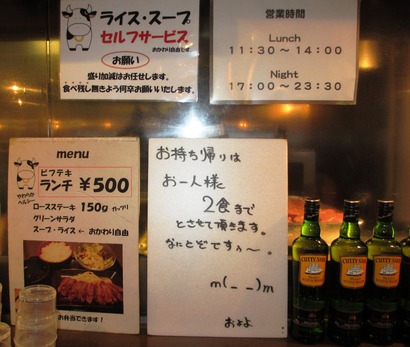 ライス・スープ
セルフサービス
おかわり自由です
お願い
盛り加減はお任せします。
食べ残し無きよう何卒お願いいたします。
営業時間
Lunch
11:30~14:00
Night
17:00~23:30
menu
やわらか
ヘルシー
ビフテキ
ランチ ¥500
ロースステーキ 150g
グリーンサラダ
スープ・ライス ← おかわり自由
お弁当できます!
お持ち帰りは
お一人様
2食まで
とさせて頂きます。
なにとぞですぅ~。
m(_ _)m
およよ
CUTTY SARK
CUTTY SARK
CUTTY SARK